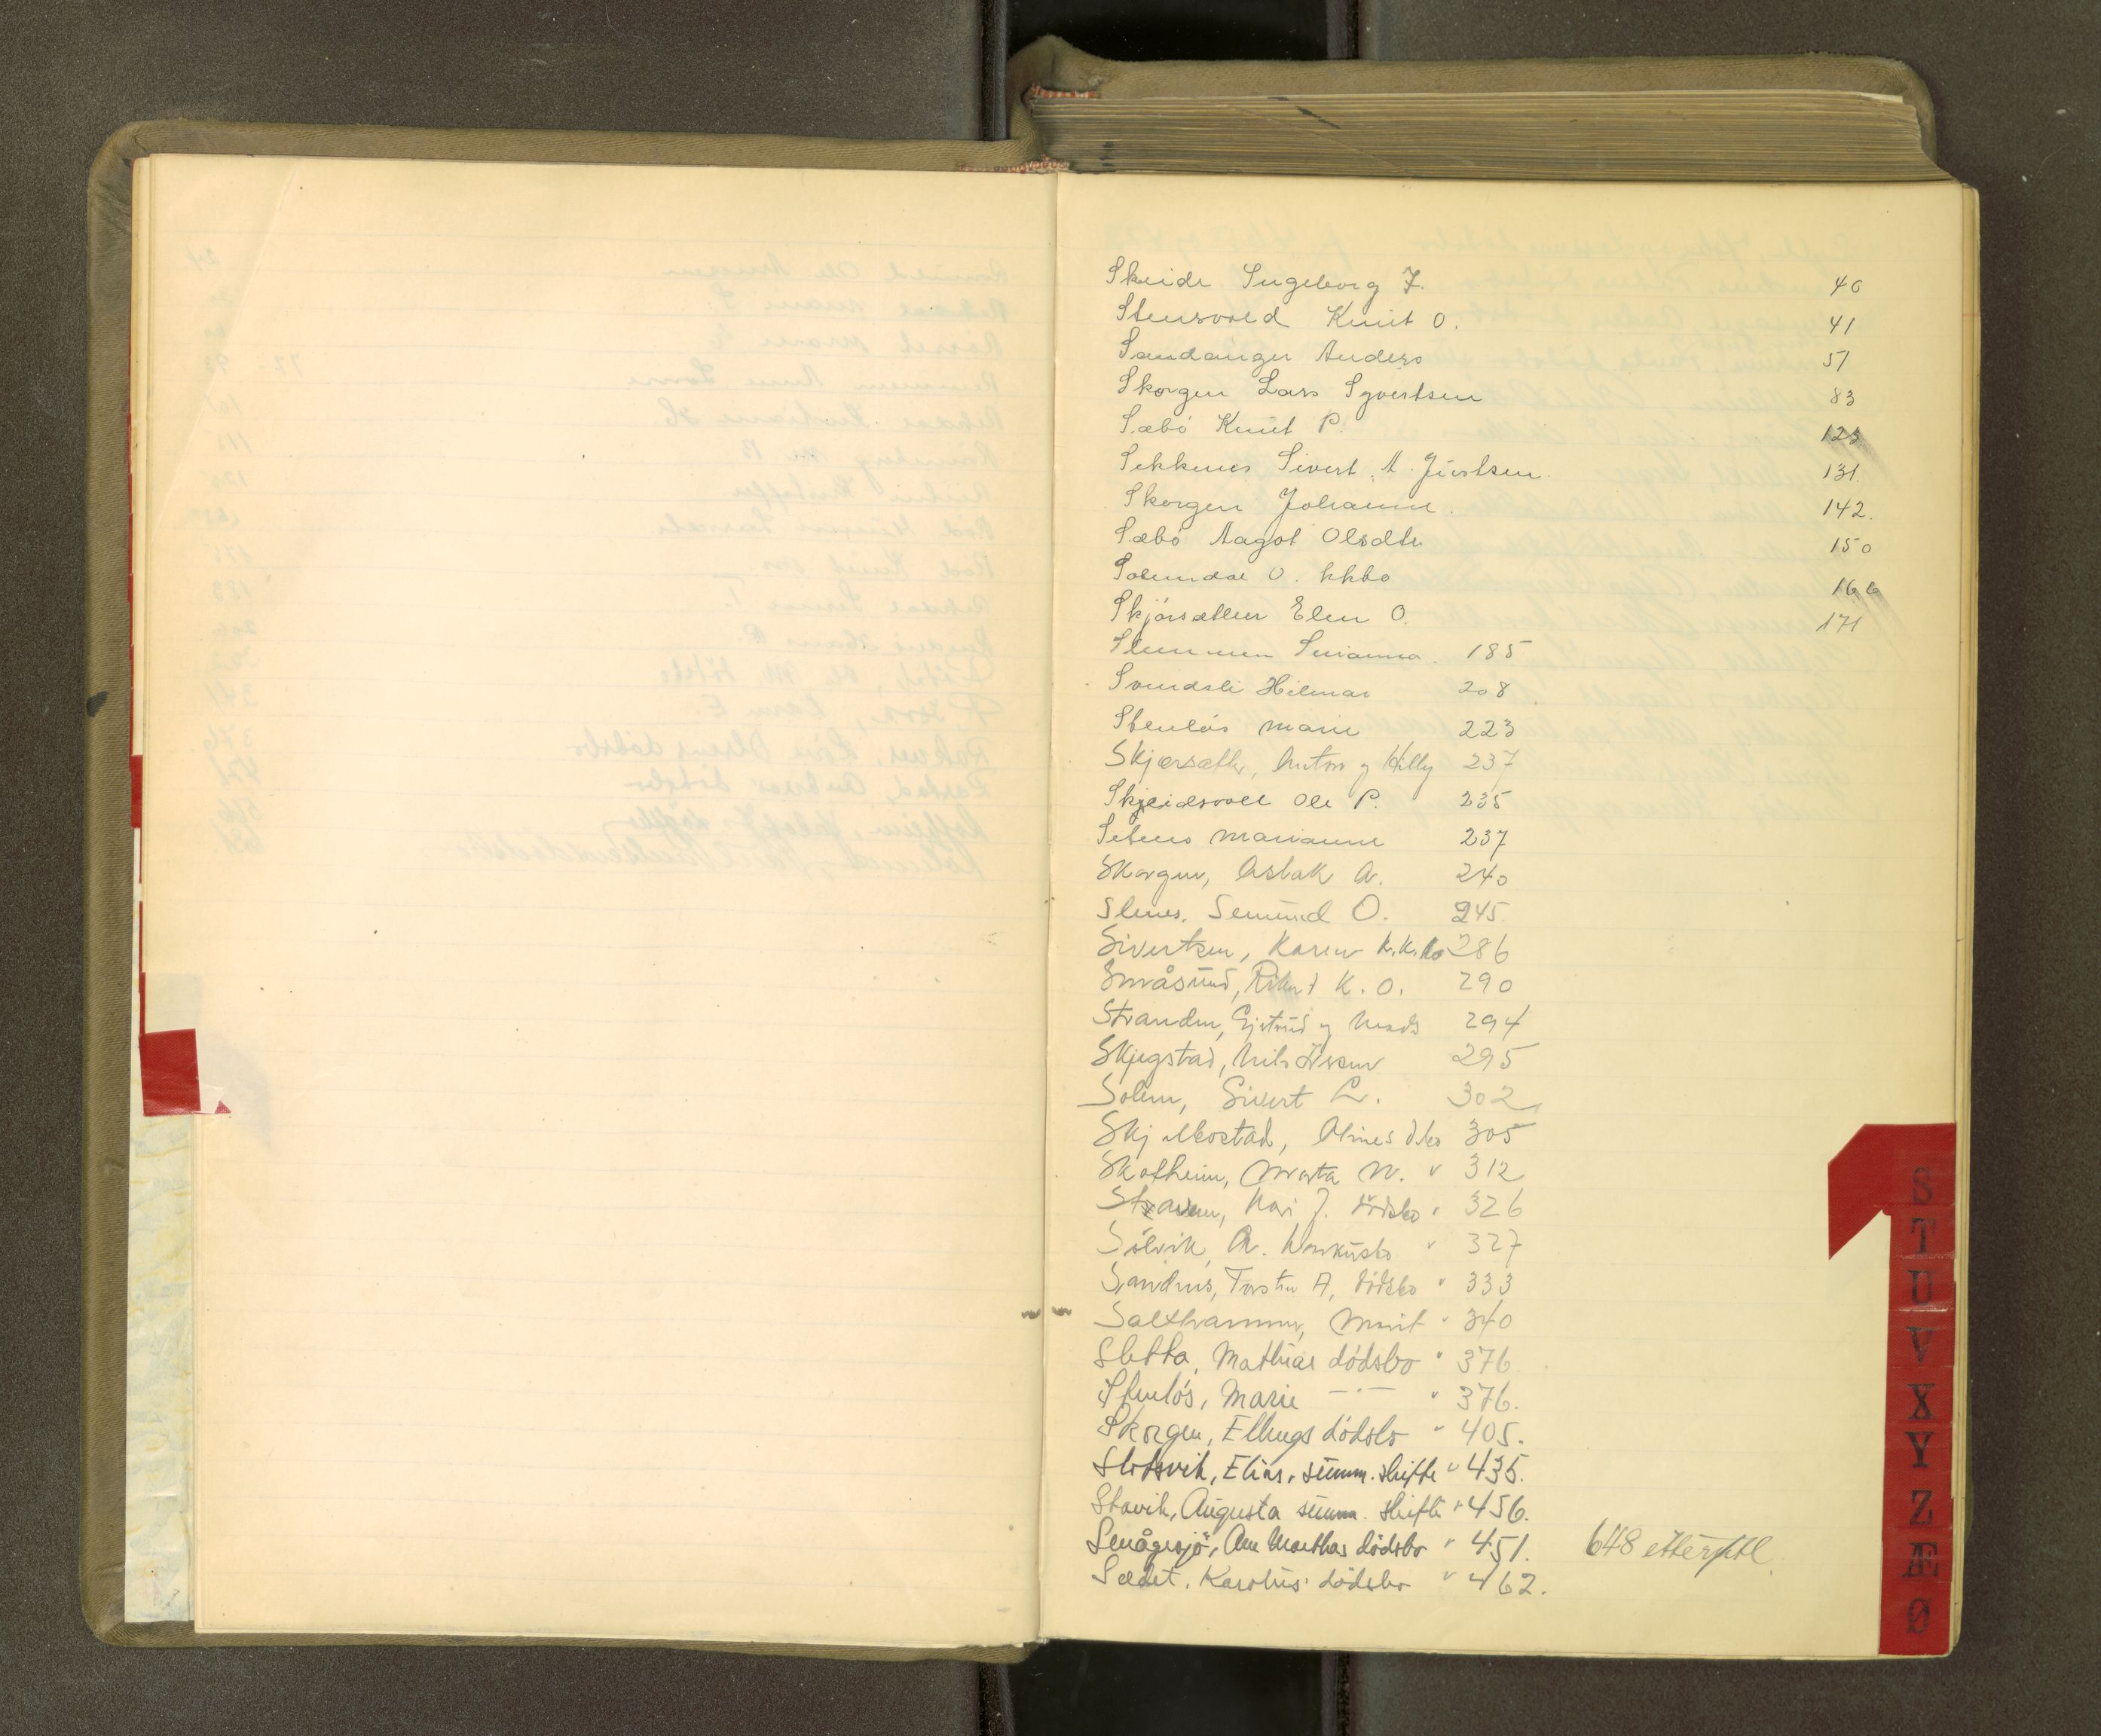 Skeide Ingeborg J. 40
Stensvold Knut O. 41
Sandanger Anders 51
Skorgen Lars Syvertsen 83
Sæbö Knut P. 123
Sekkenes Sivert A. Jüvlsen 131.
Skorgen Johanne. 142.
Sæbö Aagot Olsdtr 150
Solemdal O. kkbo 166
Skjörsætter Elen O. 171
Stemmen Susanna. 185
Svendsli Hilmar 208
Stenlös Marie 223
Skjærsætter, Anton g Hilly 237
Skjeidsvoll Ole P. 235
Setnes Marianne 237
Skorgen, Aslak A. 240
Slenes. Semünd O. 245.
Sivertsen, Karen k.k.bo 286
Småsund, K. O. 290
Stranden, Gjertrud g Mads 294
Skjegstad, Nils Iversen 295
Solem, Sivert L. 302
Skjelbostad, Olines dbo 305
Skotheim, Marta M. " 312
Kari J. dödsbo " 326
Sölvik, A. konkursbo " 327
Sandnes, Torsten A, dödsbo " 333
Salthammer, Marit " 340
Sletta, Mathias dödsbo " 376.
Stenlös, Marie —"— " 376.
Skorgen, Ellings dödsbo " 405.
Slotsvik, Elias, summ. skifte " 435.
Stavik, Augusta summ. skifte " 456.
Småge sjö, Ane Marthas dödsbo " 451. 648
Sædet. Karolus' dödsbo " 462.
S
T
U
V
X
Y
Z
Æ
Ø